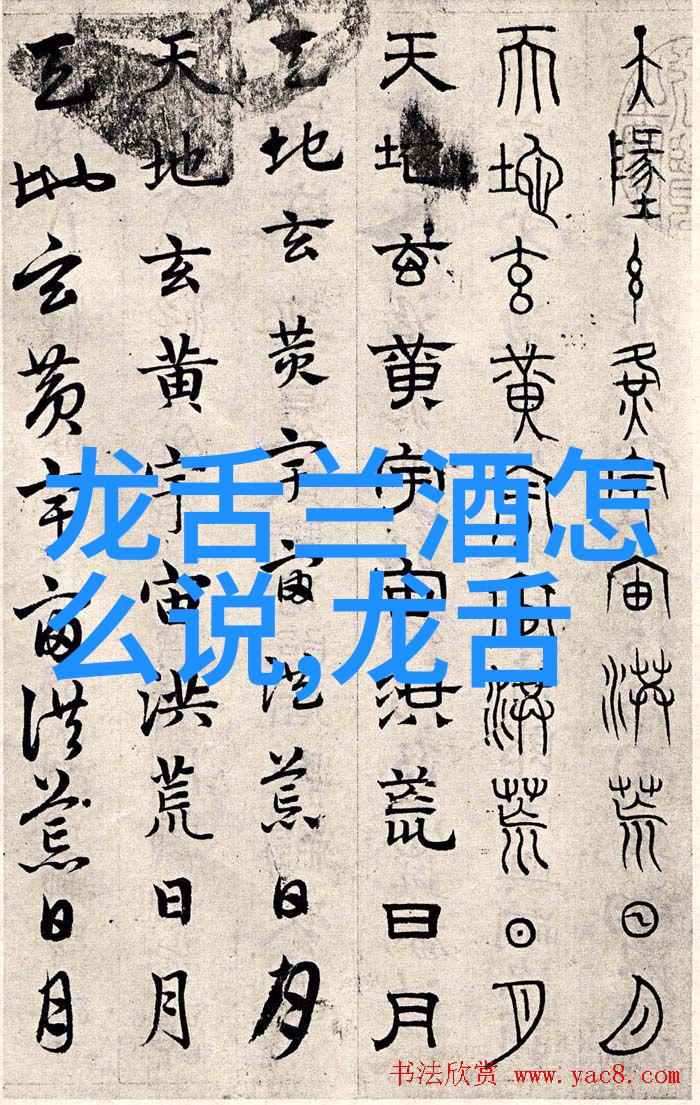 天墬玄黄宇宙洪荒日月
天地玄黄宇宙洪荒日月
天地玄黄宇宙洪荒日月
天地玄黄宇宙洪荒日月
天地玄黄宇宙洪荒日月
天地玄黄宇宙洪荒日月
龙舌兰酒怎
么说,龙舌
书法欣赏 www.yac8.com